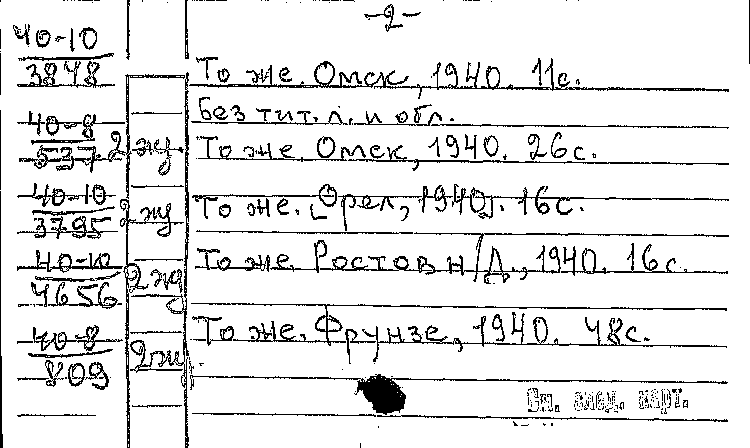 -2-
40-10
3848
То же. Омск, 1940. 11с.
Без тит. л. и обл.
40-8
537 2 жу.
То же. Омск, 1940. 26с.
40-10
3795 2жу
То же. [Орел, 1940]. 16с.
40-10
4656
То же. Ростов н/Д., 1940. 16с.
40-8
809 2жу.
То же. Фрунзе, 1940. 48с.
См. след. карт.